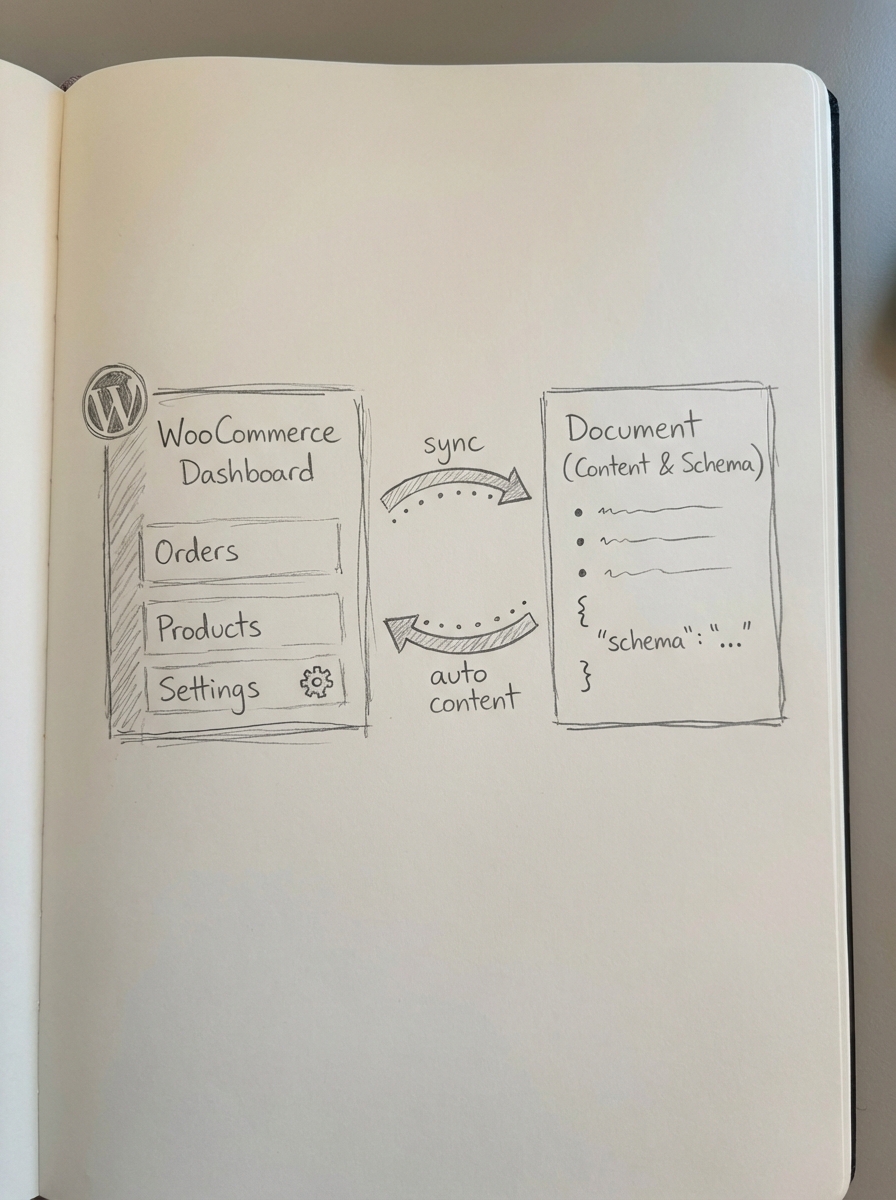 W
WooCommerce
Dashboard
Orders
Products
Settings
sync
auto
content
Document
(Content & Schema)
{
"schema": "..."
}